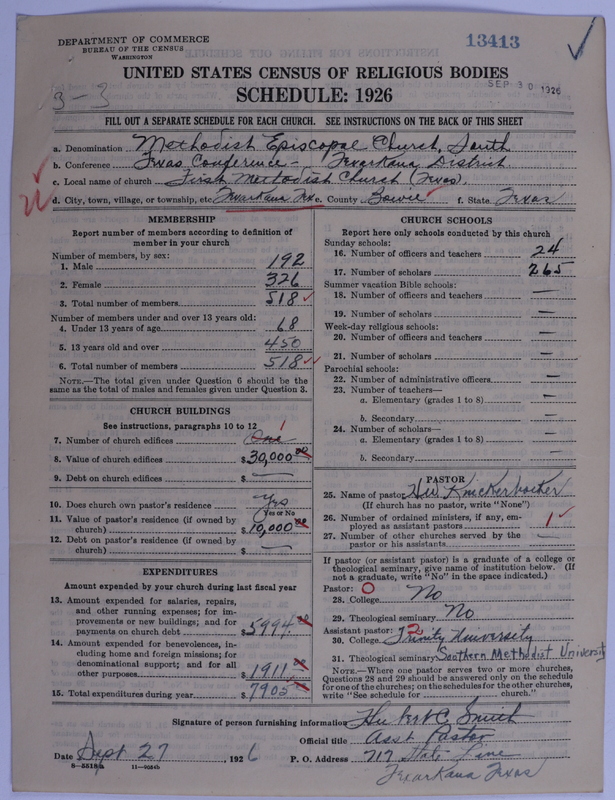 DEPARTMENT OF COMMERCE
BUREAU OF THE CENSUS
WASHINGTON
13413
UNITED STATES CENSUS OF RELIGIOUS BODIES
SEP 30 1926
3-3
SCHEDULE: 1926
FILL OUT A SEPARATE SCHEDULE FOR EACH CHURCH. SEE INSTRUCTIONS ON THE BACK OF THIS SHEET
a. Denomination Methodist Episcopal Church, South
b. Conference Texas Conference - Texarkana District
c. Local name of church First Methodist Church (Texas).
d. City, town, village, or township, etc. Texarkana, Tex e. County Bowie f. State Texas
MEMBERSHIP
Report number of members according to definition of
member in your church
Number of members, by sex:
1. Male 192
2. Female 326
3. Total number of members 518
Number of members under and over 13 years old:
4. Under 13 years of age 68
5. 13 years old and over 450
6. Total number of members 518
NOTE.—The total given under Question 6 should be the
same as the total of males and females given under Question 3.
CHURCH BUILDINGS
See instructions, paragraphs 10 to 12
7. Number of church edifices One 1
8. Value of church edifices $30,000 00
9. Debt on church edifices $ —
10. Does church own pastor's residence Yes
Yes or No
11. Value of pastor's residence (if owned by
church) $10,000 00
12. Debt on pastor's residence (if owned by
church) $ —
EXPENDITURES
Amount expended by your church during last fiscal year
13. Amount expended for salaries, repairs,
and other running expenses; for im-
provements or new buildings; and for
payments on church debt $5994. 00
14. Amount expended for benevolences, in-
cluding home and foreign missions; for
denominational support; and for all
other purposes $1911 00
15. Total expenditures during year $7905 00
CHURCH SCHOOLS
Report here only schools conducted by this church
Sunday schools:
16. Number of officers and teachers 24
17. Number of scholars 265
Summer vacation Bible schools:
18. Number of officers and teachers —
19. Number of scholars —
Week-day religious schools:
20. Number of officers and teachers —
21. Number of scholars —
Parochial schools:
22. Number of administrative officers —
23. Number of teachers—
a. Elementary (grades 1 to 8) —
b. Secondary —
24. Number of scholars—
a. Elementary (grades 1 to 8) —
b. Secondary —
PASTOR
25. Name of pastor H.W. Knickerbocker
(If church has no pastor, write "None")
26. Number of ordained ministers, if any, em-
ployed as assistant pastors 1
27. Number of other churches served by the
pastor or his assistants —
If pastor (or assistant pastor) is a graduate of a college or
theological seminary, give name of institution below. (If
not a graduate, write "No" in the space indicated.)
Pastor: 0
28. College No
29. Theological seminary No
Assistant pastor: 2
30. College Trinity University
31. Theological seminary Southern Methodist University
NOTE.—Where one pastor serves two or more churches,
Questions 28 and 29 should be answered only on the schedule
for one of the churches; on the schedules for the other churches,
write "See schedule for church."
Signature of person furnishing information Hubert C. Smith
Official title Asst Pastor
Date Sept 27, 1926 P. O. Address 717 State Line
Texarkana Texas
8—5518a 11—9054b